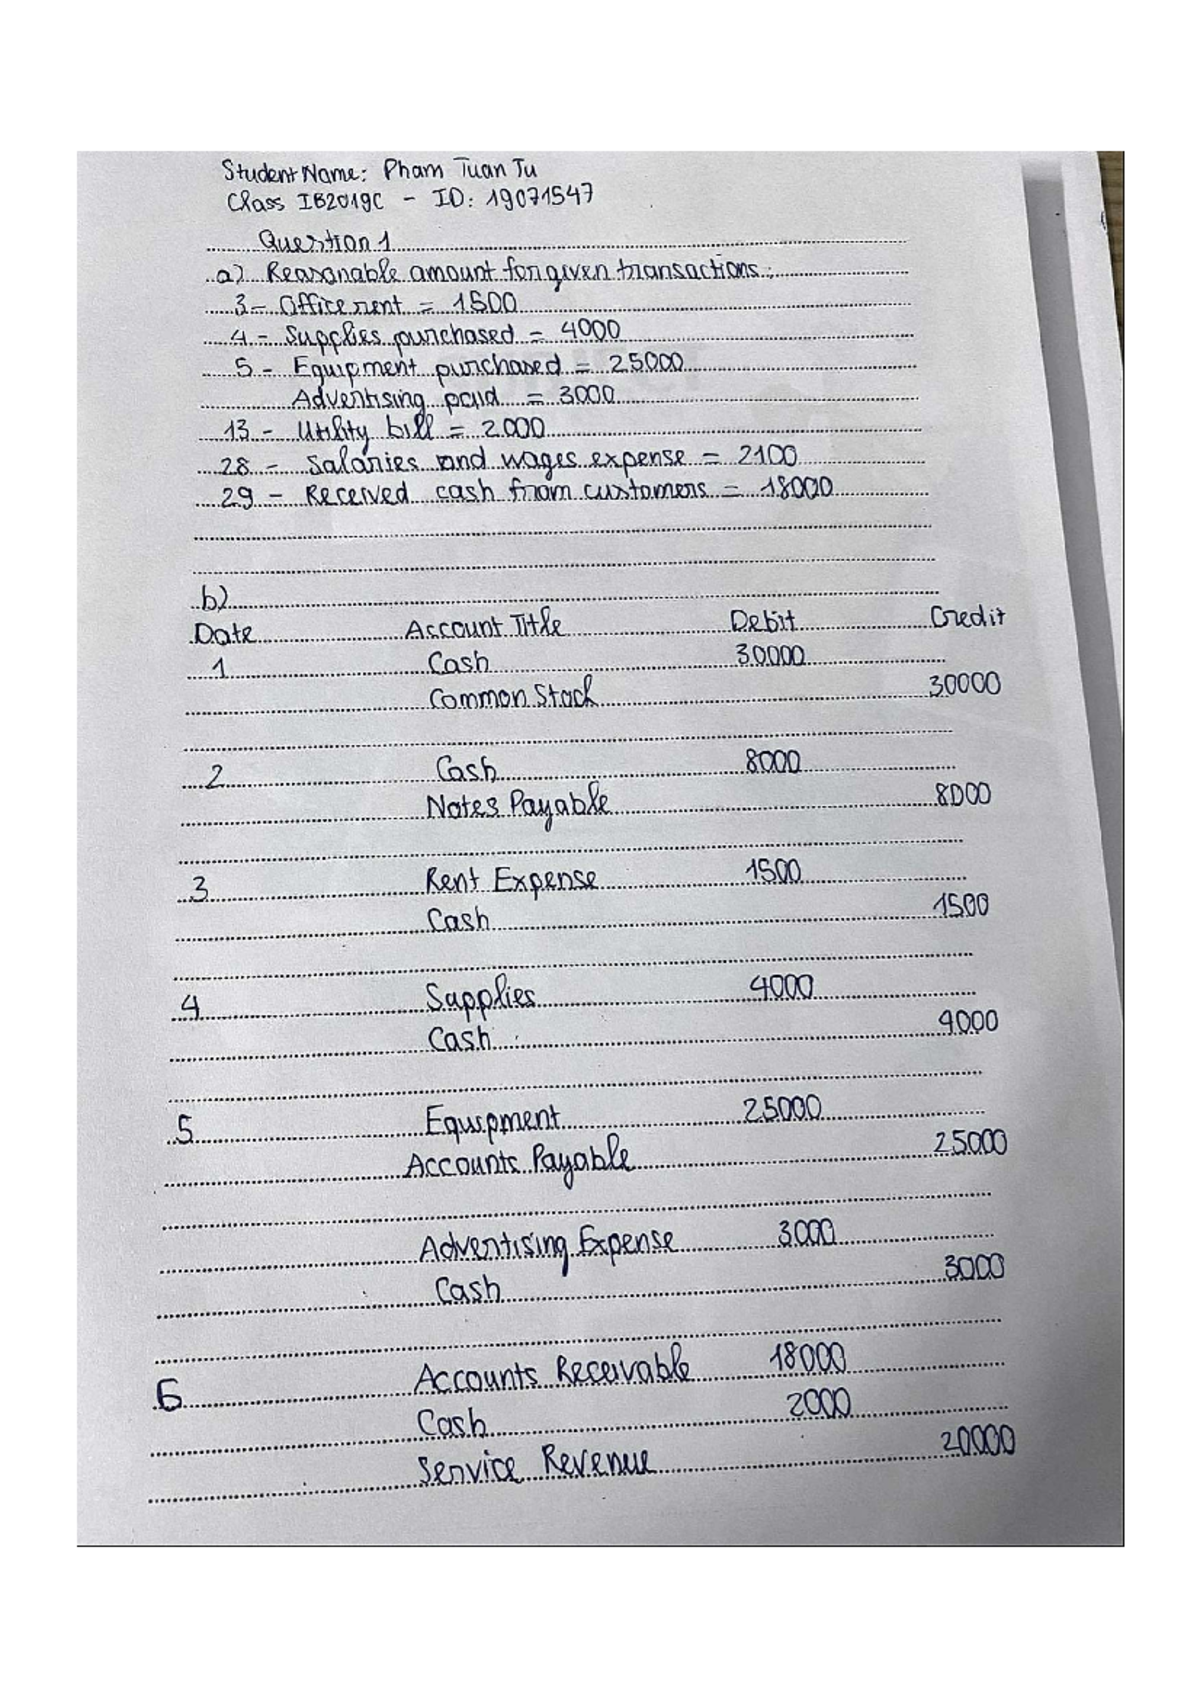 Student Name: Pham Tuan Tu
Class IB2019C - ID: 19071547
Question 1
a) Reasonable amount for given transactions:
3 - Office rent = 1500
4 - Supplies purchased = 4000
5 - Equipment purchased = 25000
Advertising paid = 3000
13 - Utility bill = 2000
28 - Salaries and wages expense = 2100
29 - Received cash from customers = 18000
b)
Date Account Title Debit Credit
1 Cash 30000
Common Stock 30000
2 Cash 8000
Notes Payable 8000
3 Rent Expense 1500
Cash 1500
4 Supplies 4000
Cash 4000
5 Equipment 25000
Accounts Payable 25000
Advertising Expense 3000
Cash 3000
6 Accounts Receivable 18000
Cash 2000
Service Revenue 20000